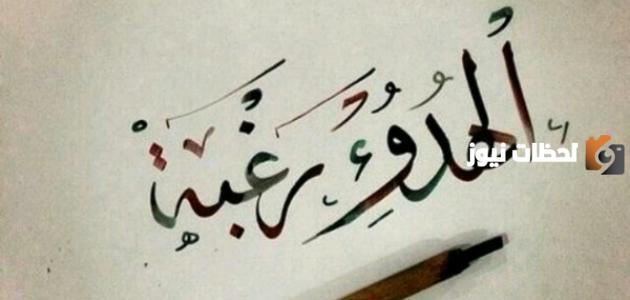 الهدوء رغبة
لحظات نيوز